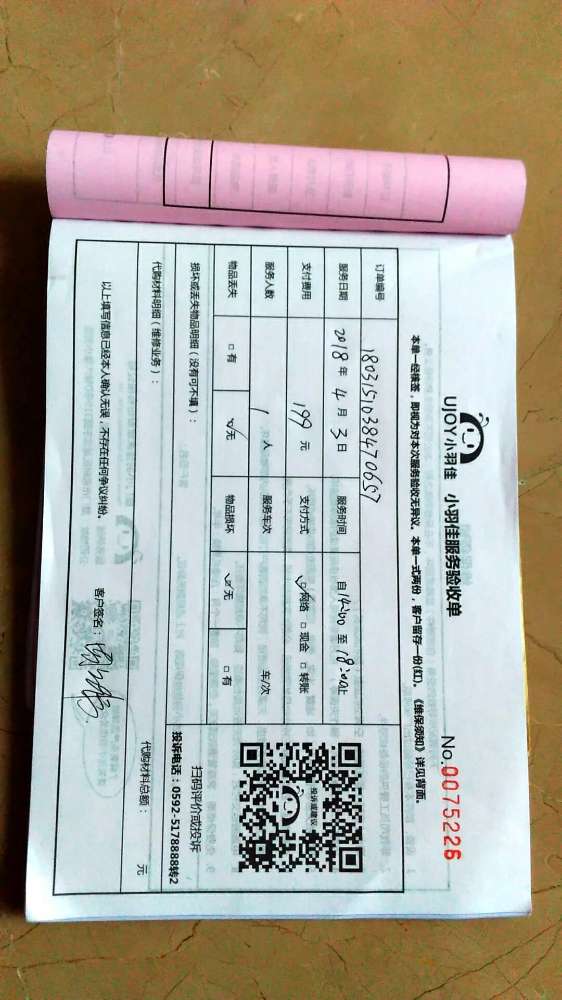 UJOY小羽佳 小羽佳服务验收单
No.0075226
本单一经接签，即视为对本次服务验收无异议。本单一式两份，客户留存一份(红)。《维保须知》详见背面。
订单编号 1803151038470657
服务日期 2018 年 4 月 3 日 服务时间 自 14:00 至 18:00止
支付费用 199 元 支付方式 ☑网络 □现金 □转账
服务人数 1 人 服务车次 车/次
物品丢失 □有 ☑无 物品损坏 ☑无 □有
损坏或丢失物品明细（没有可不填）：
投诉或建议
扫码评价或投诉
投诉电话：0592-5178888转2
代购材料明细（维修业务）：
代购材料总额： 元
以上填写信息已经本人确认无误，不存在任何争议纠纷。
客户签名：